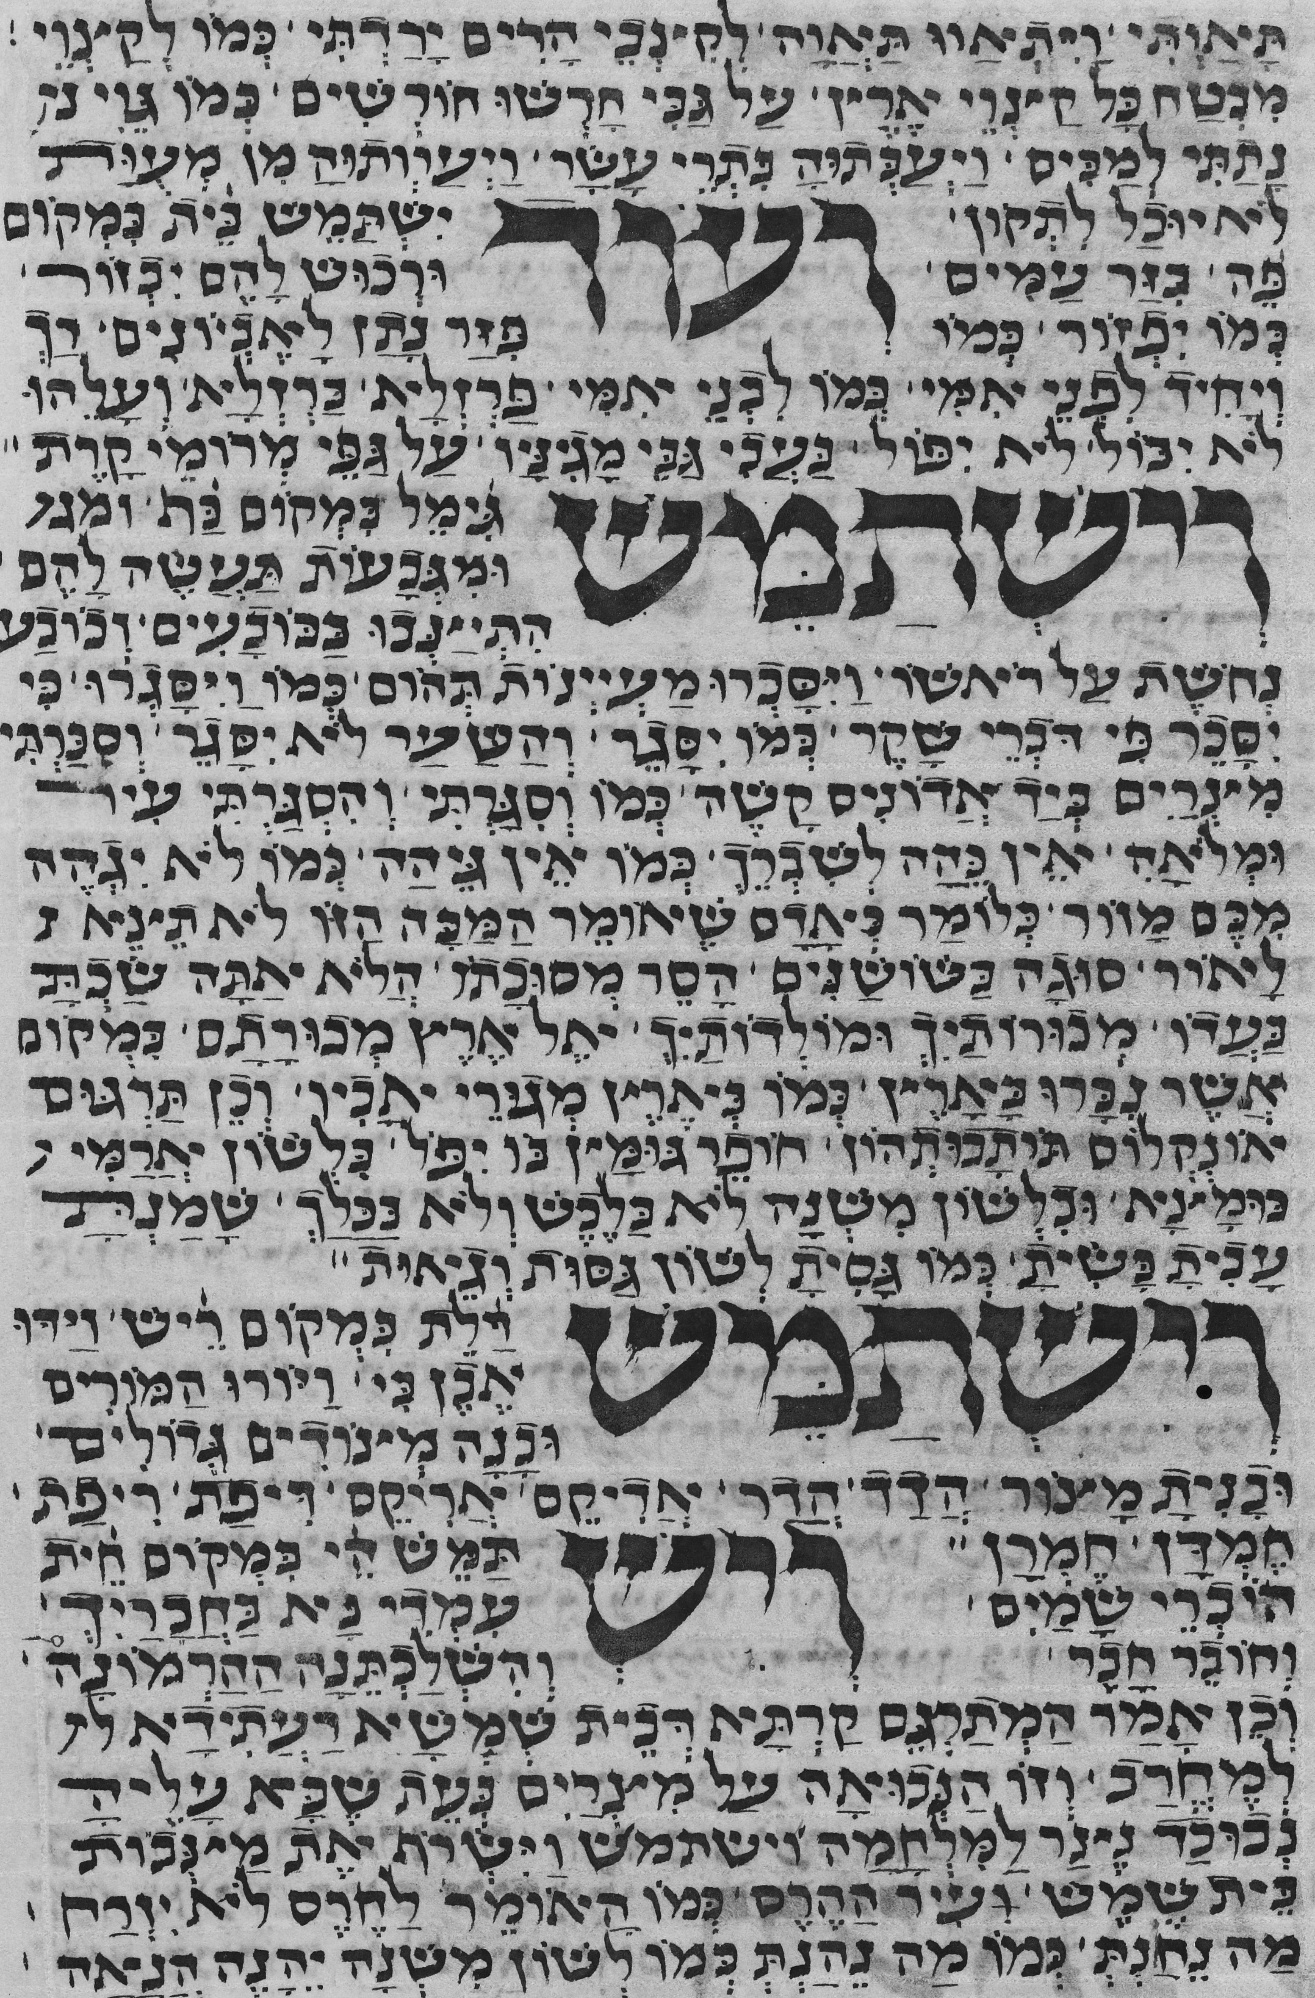 תאותי ויתאוו תאוה לקצבי הרים ירדתי כמו לקצוי
מבטח כל קצוי ארץ על גבי חרשו חורשים כמו גוי נ׳
נתתי למכים ויעבתוה בתרי עשר ויעותוה מן מעות
לא יוכל לתקון רשרר ישתמש בית במקום
פה בזר עמים ורכוש להם יבזור
כמו יפזור כמו פזר נתן לאביונים דך
ויחיד לפני אמי כמו לבני אמי פרזלא ברזלא ועלהו
לא יבול לא יפול בעבי גבי מגיניו על גפי מרומי קרת
ורשתמש גימל במקום כת ומג׳
ומגבעות תעשה להם
התיצבו בכובעים וכובע
נחשת על ראשו ויסכרו מעינות תהום כמו ויסגרו כי
יסכר פי דברי שקר כמו יסגר והשער לא יסגר וסכרתי
מצרים ביד אדונים קשה כמו וסגרתי והסגרתי עיר
ומלואה אין כהה לשברך כמו אין גיהה כמו לא יגהה
מכם מזור כלומר כאדם שאומר המכה הזו לא תצא
לאור סוגה בשושנים הסר מסוכתו הלא אתה שכת
בעדו מכורותיך ומולדותיך אל ארץ מכורתם במקום
אשר נבראו בארץ כמו בארץ מגורי אביו וכן תרגום
אונקלוס תותבותהון חופר גומץ בו יפל בלשון ארמי
כומצא ובלשון משנה לא בלבש ולא בכלך שמנת
עבית כשית כמו גסית לשון גסות וגאות
ורשתמש דלת במקום ריש וידו
אבן בי ויורו המורים
ובנה מצודים גדולים
ובנית מצור הדד הדר אדיקם אריקם דיפת ריפת
חמדן חמרן ורש תמש הי במקום חית
הוברי שמים עמדי נא בחבריך
וחובר חבר והשלכתנה ההרמונה
וכן אמר המתרגם קרתא דבית שמשא דעתידא ל׳
למחרב וזו הנבואה על מצרים בעת שבא עליה
נבוכד נצר למלחמה וישתמש וישרת את מצבות
בית שמש ועיר ההרס כמו האומר לחרס לא יזרח
מה נחנת כמו מה נהנת כמו לשון משנה יהנה הנאה